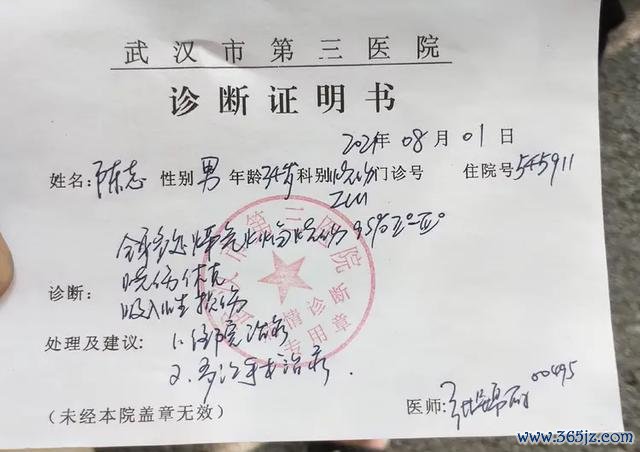 武汉市第三医院
诊断证明书
2021年08月01日
姓名:陈志 性别 男 年龄34岁科别烧伤门诊号 住院号545911
ICU
全身多处煤气火焰烧伤95%II°-III°
诊断: 烧伤休克
吸入性损伤
处理及建议: 1.住院治疗
2.多次手术治疗.
(未经本院盖章无效) 医师: 00495
武汉市第三医院
病情诊断
专用章
www.365jz.com